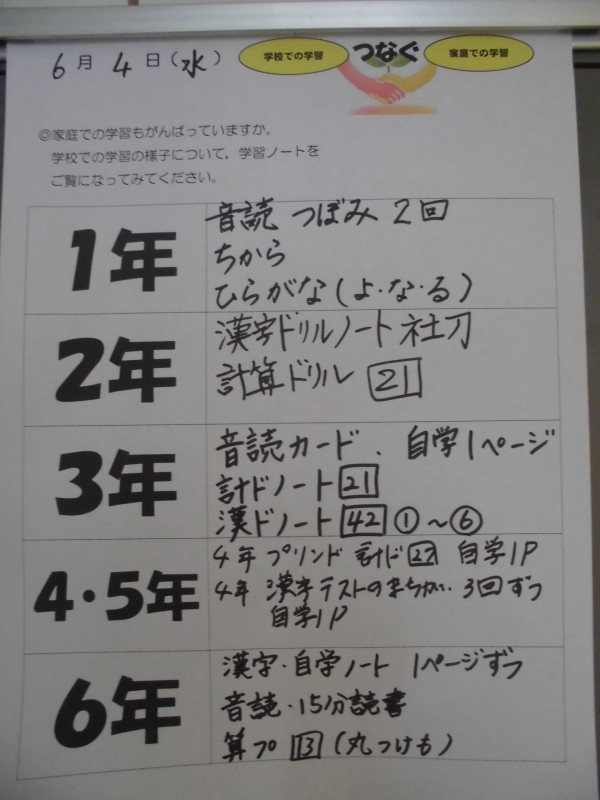 6月4日(水)
学校での学習 つなぐ 家庭での学習
◎家庭での学習もがんばっていますか。
学校での学習の様子について，学習ノートを
ご覧になってみてください。
1年
音読 つぼみ 2回
ちから
ひらがな(よ・な・る)
2年
漢字ドリルノート 社刀
計算ドリル 21
3年
音読カード、自学1ページ
計ドノート 21
漢ドノート 42 ①〜⑥
4・5年
4年 プリント 計ド 27 自学1P
4年 漢字テストのまちがい 3回ずつ
自学1P
6年
漢字・自学ノート 1ページずつ
音読・15分読書
算プ 13 (丸つけも)